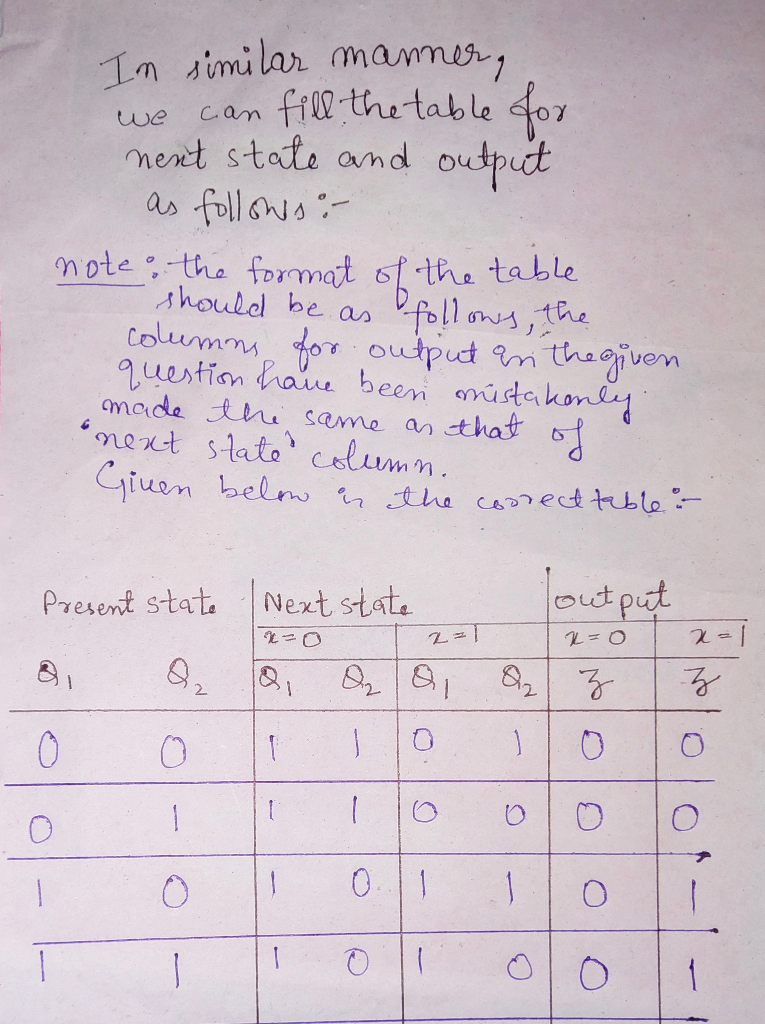 In similar manner,
we can fill the table for
next state and output
as follows :-
note : the format of the table
should be as follows, the
columns for output in the given
question have been mistakenly
made the same as that of
'next state' column.
Given below is the correct table :-
Present state Next state output
x=0 x=1 x=0 x=1
Q1 Q2 Q1 Q2 Q1 Q2 z z
0 0 1 1 0 1 0 0
0 1 1 1 0 0 0 0
1 0 1 0 1 1 0 1
1 1 1 0 1 0 0 1